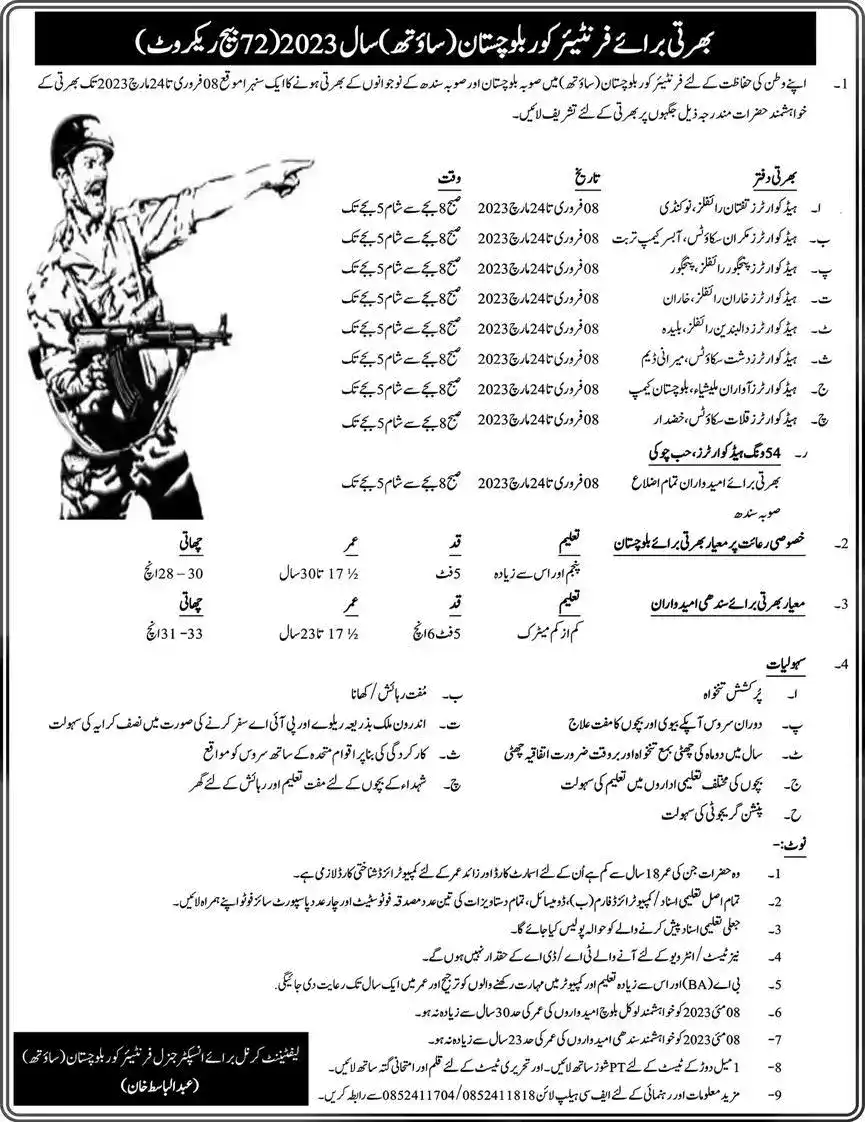 بھرتی برائے فرنٹیئر کور بلوچستان (ساؤتھ) سال 2023 (72 بیچ ریکروٹ)
1۔ اپنے وطن کی حفاظت کے لئے فرنٹیئر کور بلوچستان (ساؤتھ) میں صوبہ بلوچستان اور صوبہ سندھ کے نوجوانوں کے بھرتی ہونے کا ایک سنہرا موقع 08 فروری تا 24 مارچ 2023 تک بھرتی کے
خواہشمند حضرات مندرجہ ذیل جگہوں پر بھرتی کے لئے تشریف لائیں۔
بھرتی دفتر تاریخ وقت
ا۔ ہیڈ کوارٹرز تفتان رائفلز، نوکنڈی 08 فروری تا 24 مارچ 2023 صبح 8 بجے سے شام 5 بجے تک
ب۔ ہیڈ کوارٹرز مکران سکاؤٹس، آبسر کیمپ تربت 08 فروری تا 24 مارچ 2023 صبح 8 بجے سے شام 5 بجے تک
پ۔ ہیڈ کوارٹرز پنجگور رائفلز، پنجگور 08 فروری تا 24 مارچ 2023 صبح 8 بجے سے شام 5 بجے تک
ت۔ ہیڈ کوارٹرز خاران رائفلز، خاران 08 فروری تا 24 مارچ 2023 صبح 8 بجے سے شام 5 بجے تک
ٹ۔ ہیڈ کوارٹرز دالبندین رائفلز، بلیدہ 08 فروری تا 24 مارچ 2023 صبح 8 بجے سے شام 5 بجے تک
ث۔ ہیڈ کوارٹرز دشت سکاؤٹس، میرانی ڈیم 08 فروری تا 24 مارچ 2023 صبح 8 بجے سے شام 5 بجے تک
ج۔ ہیڈ کوارٹرز آواران ملیشیاء، بلوچستان کیمپ 08 فروری تا 24 مارچ 2023 صبح 8 بجے سے شام 5 بجے تک
چ۔ ہیڈ کوارٹرز قلات سکاؤٹس، خضدار 08 فروری تا 24 مارچ 2023 صبح 8 بجے سے شام 5 بجے تک
ر۔ 54 ونگ ہیڈ کوارٹرز، حب چوکی
بھرتی برائے امیدواران تمام اضلاع 08 فروری تا 24 مارچ 2023 صبح 8 بجے سے شام 5 بجے تک
صوبہ سندھ
2۔ خصوصی رعائت پر معیار بھرتی برائے بلوچستان تعلیم قد عمر چھاتی
پنجم اور اس سے زیادہ 5 فٹ ½ 17 تا 30 سال 30 – 28 انچ
3۔ معیار بھرتی برائے سندھی امیدواران تعلیم قد عمر چھاتی
کم از کم میٹرک 5 فٹ 6 انچ ½ 17 تا 23 سال 33 – 31 انچ
4۔ سہولیات
ا۔ پُر کشش تنخواہ ب۔ مُفت رہائش / کھانا
پ۔ دوران سروس آپکے بیوی اور بچوں کا مفت علاج ت۔ اندرون ملک بذریعہ ریلوے اور پی آئی اے سفر کرنے کی صورت میں نصف کرایہ کی سہولت
ٹ۔ سال میں دو ماہ کی چھٹی بمع تنخواہ اور بروقت ضرورت اتفاقیہ چھٹی ث۔ کارکردگی کی بنا پر اقوام متحدہ کے ساتھ سروس کو مواقع
ج۔ بچوں کی مختلف تعلیمی اداروں میں تعلیم کی سہولت چ۔ شہداء کے بچوں کے لئے مفت تعلیم اور رہائش کے لئے گھر
ح۔ پنشن گریجوٹی کی سہولت
نوٹ:-
1۔ وہ حضرات جن کی عمر 18 سال سے کم ہے اُن کے لئے اسمارٹ کارڈ اور زائد عمر کے لئے کمپیوٹرائزڈ شناختی کارڈ لازمی ہے۔
2۔ تمام اصل تعلیمی اسناد / کمپیوٹرائزڈ فارم (ب)، ڈومیسائل، تمام دستاویزات کی تین عدد مصدقہ فوٹو سٹیٹ اور چار عدد پاسپورٹ سائز فوٹو اپنے ہمراہ لائیں۔
3۔ جعلی تعلیمی اسناد پیش کرنے والے کو حوالہ پولیس کیا جائے گا۔
4۔ نیز ٹیسٹ / انٹرویو کے لئے آنے والے ٹی اے / ڈی اے کے حقدار نہیں ہوں گے۔
5۔ بی اے (BA) اور اس سے زیادہ تعلیم اور کمپیوٹر میں مہارت رکھنے والوں کو ترجیح اور عمر میں ایک سال تک رعایت دی جائیگی۔
6۔ 08 مئی 2023 کو خواہشمند لوکل بلوچ امیدواروں کی عمر کی حد 30 سال سے زیادہ نہ ہو۔
7- 08 مئی 2023 کو خواہشمند سندھی امیدواروں کی عمر کی حد 23 سال سے زیادہ نہ ہو۔
8- 1 میل دوڑ کے ٹیسٹ کے لئے PT شوز ساتھ لائیں۔ اور تحریری ٹیسٹ کے لئے قلم اور امتحانی گتہ ساتھ لائیں۔
9- مزید معلومات اور رہنمائی کے لئے ایف سی ہیلپ لائن 0852411704/0852411818 سے رابطہ کریں۔
لیفٹیننٹ کرنل برائے انسپکٹر جنرل فرنٹیئر کور بلوچستان (ساؤتھ)
(عبدالباسط خان)